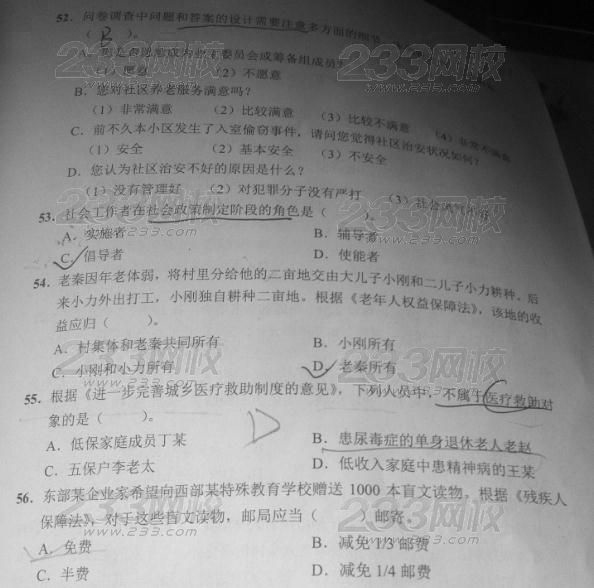 52. 问卷调查中问题和答案的设计需要注意多方面的细节
( B )。
A. 您是否愿意成为业主委员会或筹备组成员?
(1) 愿意 (2) 不愿意
B. 您对社区养老服务满意吗?
(1) 非常满意 (2) 比较满意 (3) 比较不满意 (4) 非常不满意
C. 前不久本小区发生了入室偷窃事件, 请问您觉得社区治安状况如何?
(1) 安全 (2) 基本安全 (3) 不安全
D. 您认为社区治安不好的原因是什么?
(1) 没有管理好 (2) 对犯罪分子没有严打 (3) 社会
53. 社会工作者在社会政策制定阶段的角色是( )。
A. 实施者 B. 辅导者
C. 倡导者 D. 使能者
54. 老秦因年老体弱, 将村里分给他的二亩地交由大儿子小刚和二儿子小力耕种。后
来小力外出打工, 小刚独自耕种二亩地。根据《老年人权益保障法》, 该地的收
益应归( )。
A. 村集体和老秦共同所有 B. 小刚所有
C. 小刚和小力所有 D. 老秦所有
55. 根据《进一步完善城乡医疗救助制度的意见》, 下列人员中, 不属于医疗救助对
象的是( )。 D
A. 低保家庭成员丁某 B. 患尿毒症的单身退休老人老赵
C. 五保户李老太 D. 低收入家庭中患精神病的王某
56. 东部某企业家希望向西部某特殊教育学校赠送 1000 本盲文读物。根据《残疾人
保障法》, 对于这些盲文读物, 邮局应当( )邮寄。
A. 免费 B. 减免 1/3 邮费
C. 半费 D. 减免 1/4 邮费
233网校
www.233.com